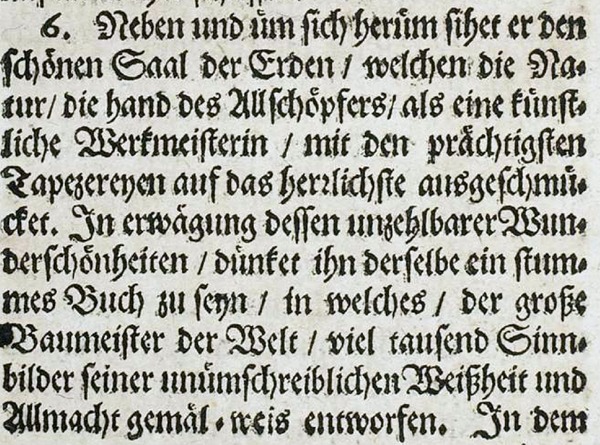 6. Neben und üm sich herüm sihet er den
schönen Saal der Erden / welchen die Na⸗
tur / die hand des Allschöpfers / als eine künst⸗
liche Werkmeisterin / mit den prächtigsten
Tapezereyen auf das herꝛlichste ausgeschmü⸗
cket. In erwägung dessen unzehlbarer Wun⸗
derschönheiten / dünket ihn derselbe ein stum⸗
mes Buch zu seyn / in welches / der große
Baumeister der Welt / viel tausend Sinn⸗
bilder seiner unümschreiblichen Weißheit und
Allmacht gemäl⸗weis entworfen. In dem